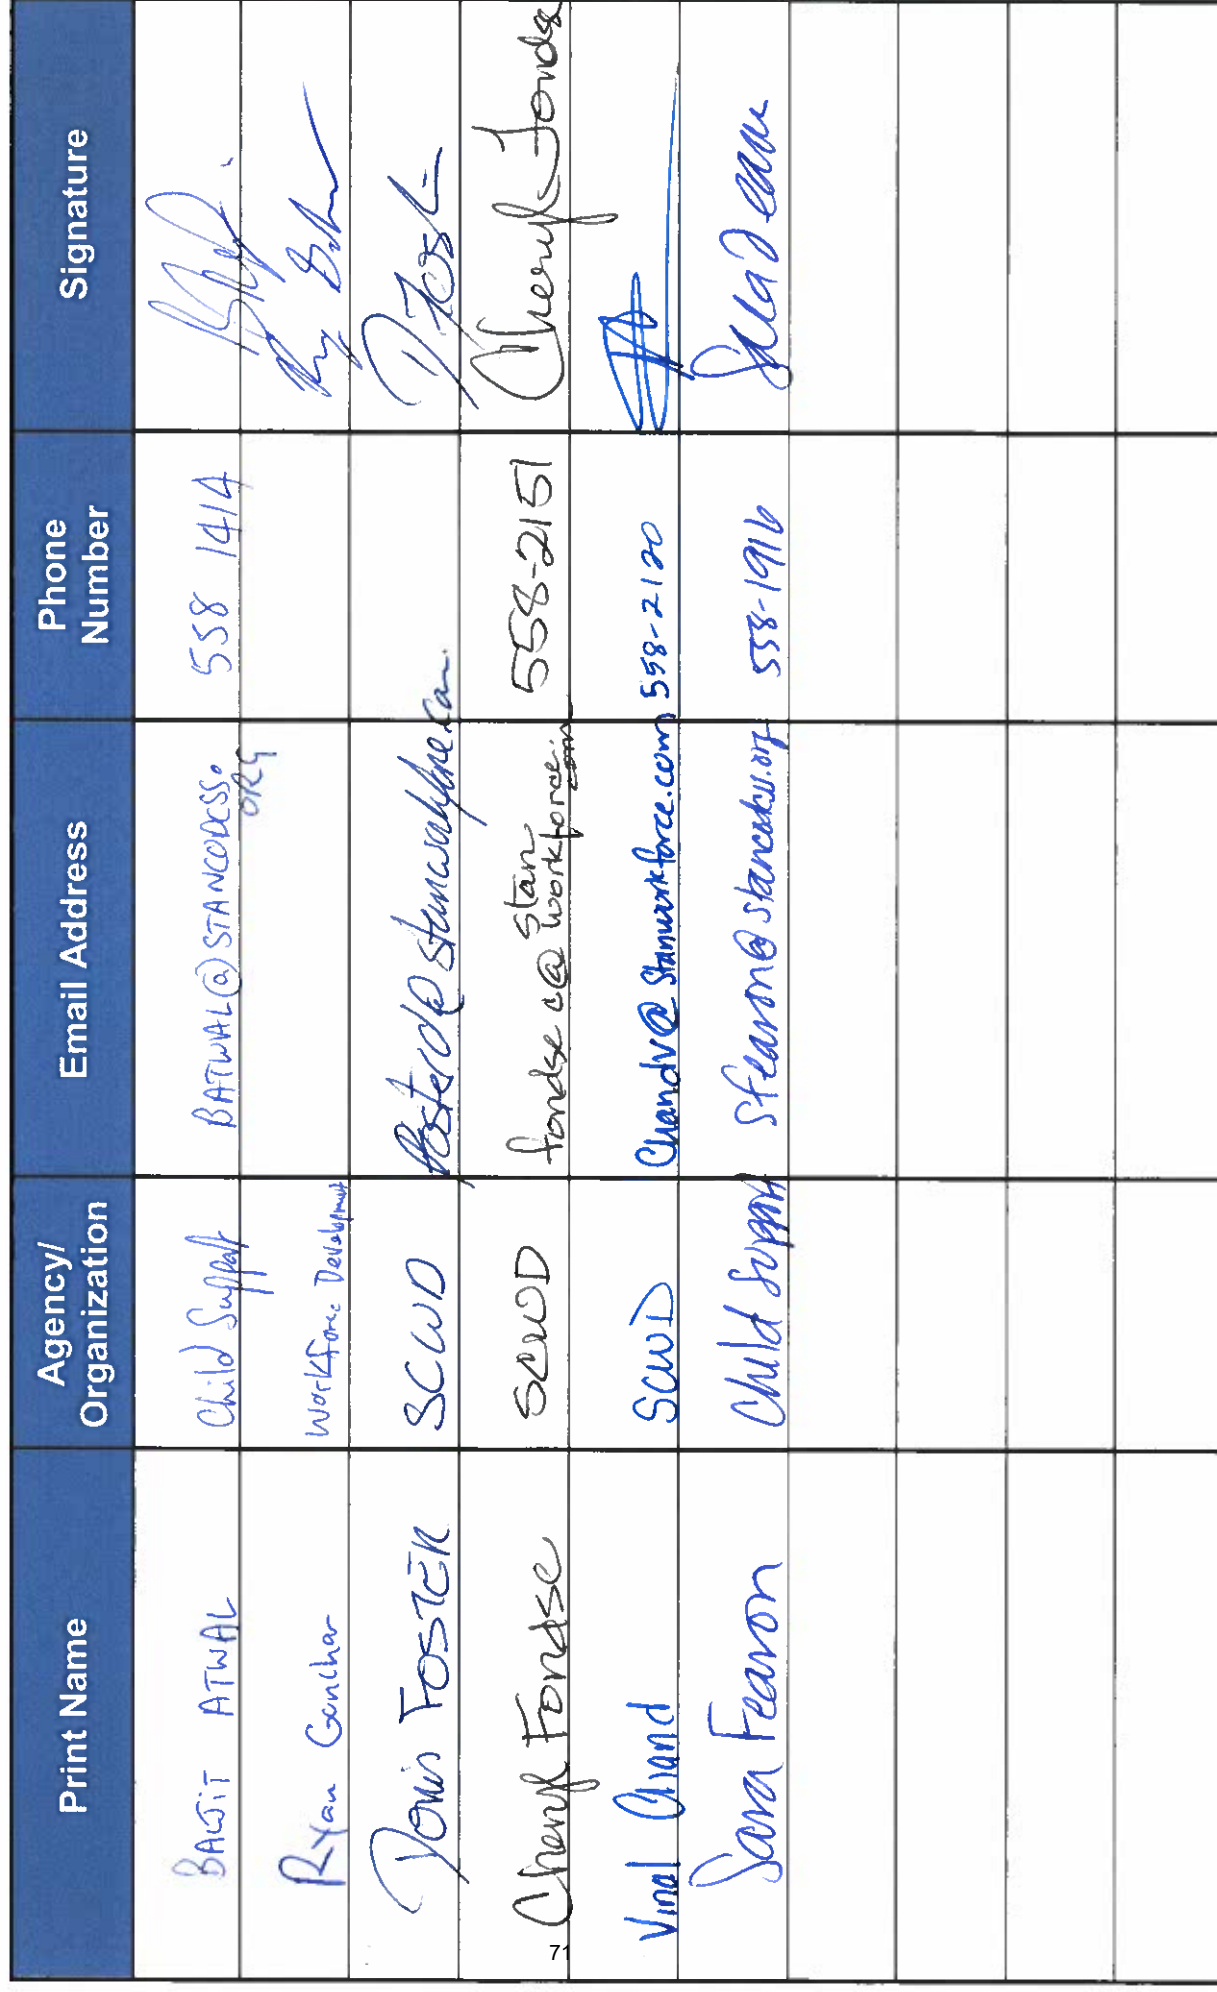 Print Name Agency/ Organization Email Address Phone Number Signature
BALJIT ATWAL Child Support BATWAL@STANCODCSS.ORG 558 1414
Ryan Workforce Development
Doris FOSTER SCWD fosterd@stanworkforce.com D Fost
Cheryl Fondse SCWD fondsec@stanworkforce.com 558-2151 Cheryl Fondse
Vinal Chand SCWD Chandv@stanworkforce.com 558-2120
Sara Fearon Child Support sfearon@stancodcss.org 558-1916
71